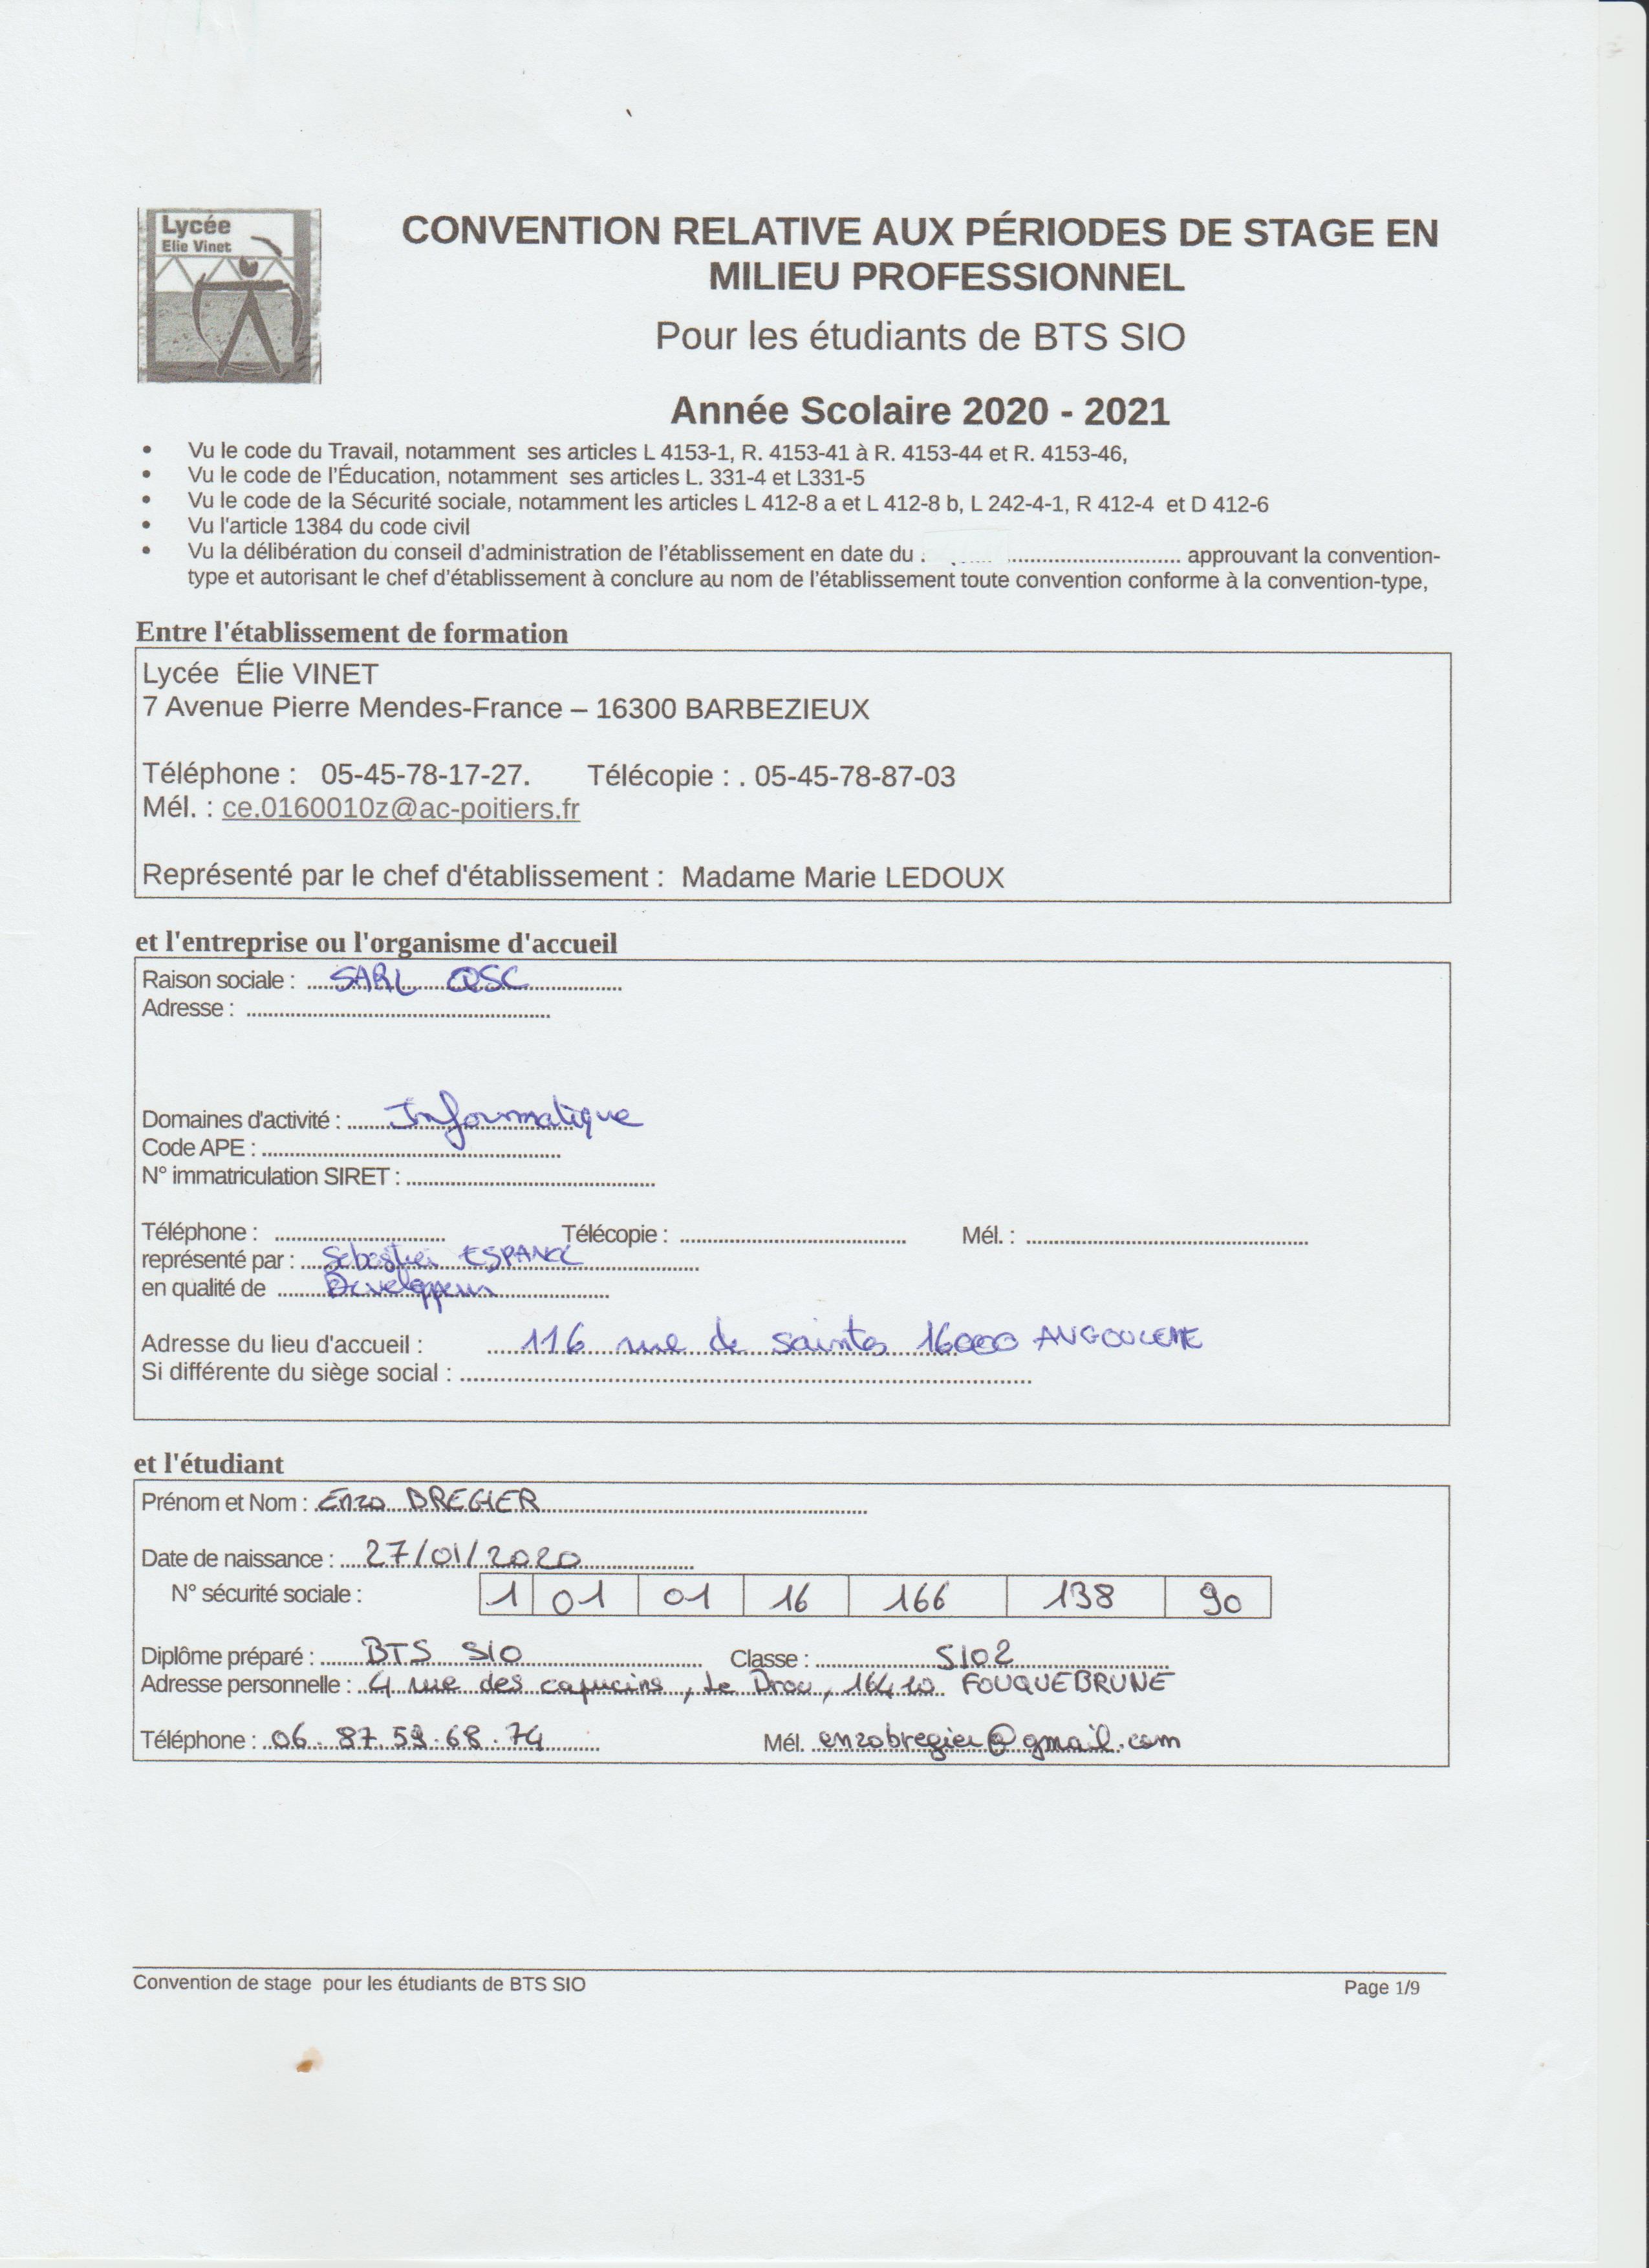 Lycée
Elie Vinet
CONVENTION RELATIVE AUX PÉRIODES DE STAGE EN
MILIEU PROFESSIONNEL
Pour les étudiants de BTS SIO
Année Scolaire 2020 - 2021
• Vu le code du Travail, notamment ses articles L 4153-1, R. 4153-41 à R. 4153-44 et R. 4153-46,
• Vu le code de l'Éducation, notamment ses articles L. 331-4 et L331-5
• Vu le code de la Sécurité sociale, notamment les articles L 412-8 a et L 412-8 b, L 242-4-1, R 412-4 et D 412-6
• Vu l'article 1384 du code civil
• Vu la délibération du conseil d'administration de l'établissement en date du . . ..... ............................... approuvant la convention-
type et autorisant le chef d'établissement à conclure au nom de l'établissement toute convention conforme à la convention-type,
Entre l'établissement de formation
Lycée Élie VINET
7 Avenue Pierre Mendes-France – 16300 BARBEZIEUX
Téléphone : 05-45-78-17-27. Télécopie : . 05-45-78-87-03
Mél. : ce.0160010z@ac-poitiers.fr
Représenté par le chef d'établissement : Madame Marie LEDOUX
et l'entreprise ou l'organisme d'accueil
Raison sociale : SARL @SC
Adresse :
Domaines d'activité : Informatique
Code APE :
N° immatriculation SIRET :
Téléphone : Télécopie : Mél. :
représenté par : Sebastien
en qualité de Developpeur
Adresse du lieu d'accueil : 116 rue de saintes 16000 ANGOULEME
Si différente du siège social :
et l'étudiant
Prénom et Nom : Enzo BREGIER
Date de naissance : 27/01/2020
N° sécurité sociale : 1 01 01 16 166 138 90
Diplôme préparé : BTS SIO Classe : SIO2
Adresse personnelle : 4 rue des capucins, Le Drou, 16410 FOUQUEBRUNE
Téléphone : 06.87.59.68.74 Mél. enzobregier@gmail.com
Convention de stage pour les étudiants de BTS SIO Page 1/9